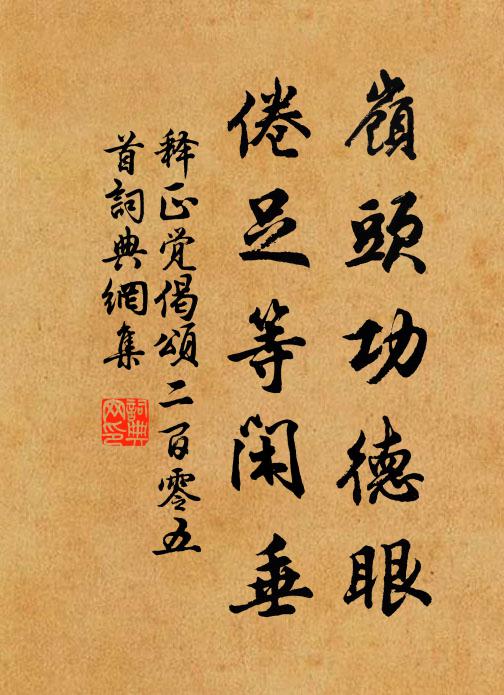 嶺頭功德眼
倦足等閑垂
释正覚偈頌二百零五
首詞典網集
詞典網印